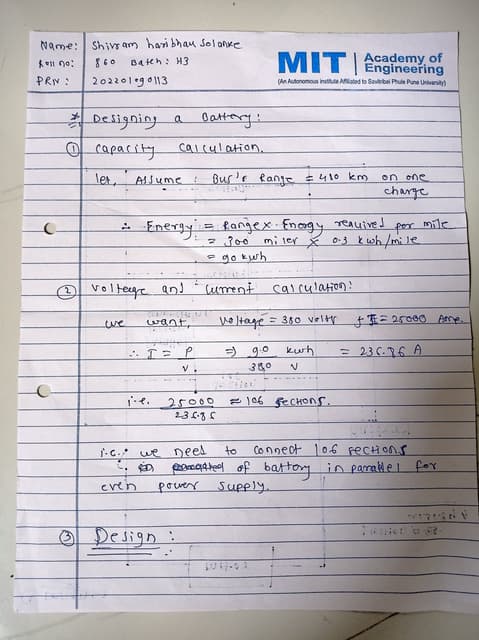 Name: Shivram haribhau Solanke
Roll no: 860 Batch: H3
PRN: 202201090113
MIT | Academy of Engineering
(An Autonomous Institute Affiliated to Savitribai Phule Pune University)
* Designing a Battery:
① Capacity Calculation.
let, Assume: Bus's Range = 480 km on one
charge
∴ Energy = Range x Energy required per mile
= 300 miles x 0.3 kwh/mile
= 90 kwh
② Voltage and Current Calculation:
we want, Voltage = 380 volts & I = 25000 Amp.
∴ I = P/V. => 90/380 kwh/V = 236.86 A
i.e. 25000/236.86 ≈ 106 sections.
i.e. we need to connect 106 sections
of battery in parallel for
even power supply.
③ Design: